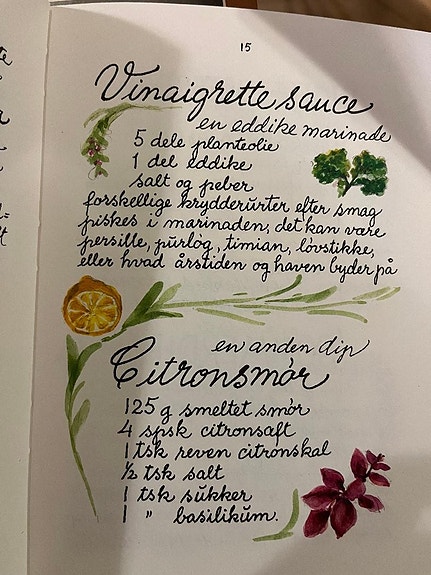 15
Vinaigrette sauce
en eddike marinade
5 dele planteolie
1 del eddike
salt og peber
forskellige krydderurter efter smag
piskes i marinaden, det kan være
persille, purløg, timian, løvstikke,
eller hvad årstiden og haven byder på
en anden dip
Citronsmør
125 g smeltet smør
4 spsk citronsaft
1 tsk reven citronskal
½ tsk salt
1 tsk sukker
1 " basilikum.